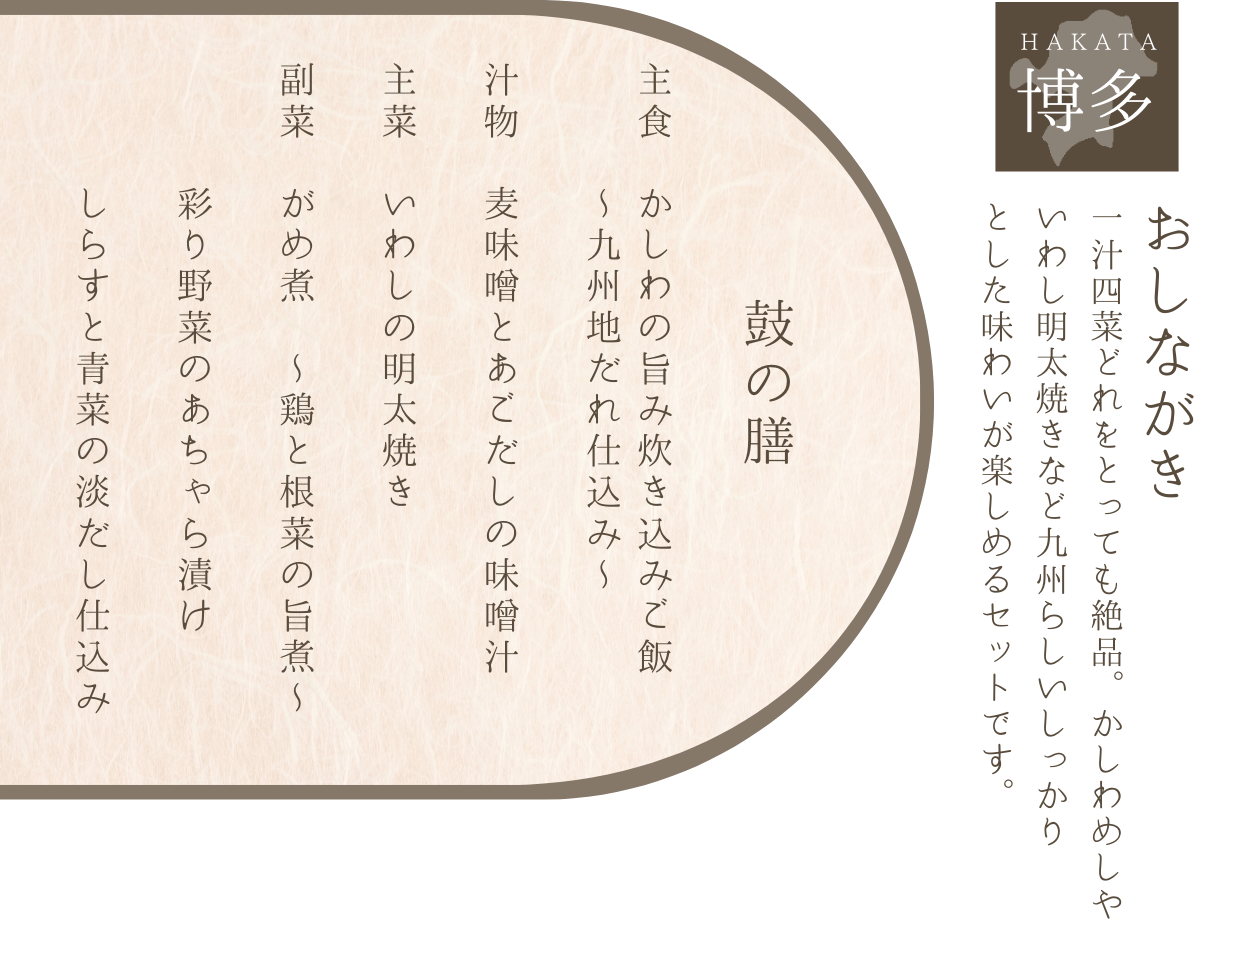 HAKATA
博多
おしながき
一汁四菜どれをとっても絶品。かしわめしや
いわし明太焼きなど九州らしいしっかり
とした味わいが楽しめるセットです。
鼓の膳
主食 かしわの旨み炊き込みご飯
〜九州地だれ仕込み〜
汁物 麦味噌とあごだしの味噌汁
主菜 いわしの明太焼き
副菜 がめ煮 〜鶏と根菜の旨煮〜
彩り野菜のあちゃら漬け
しらすと青菜の淡だし仕込み